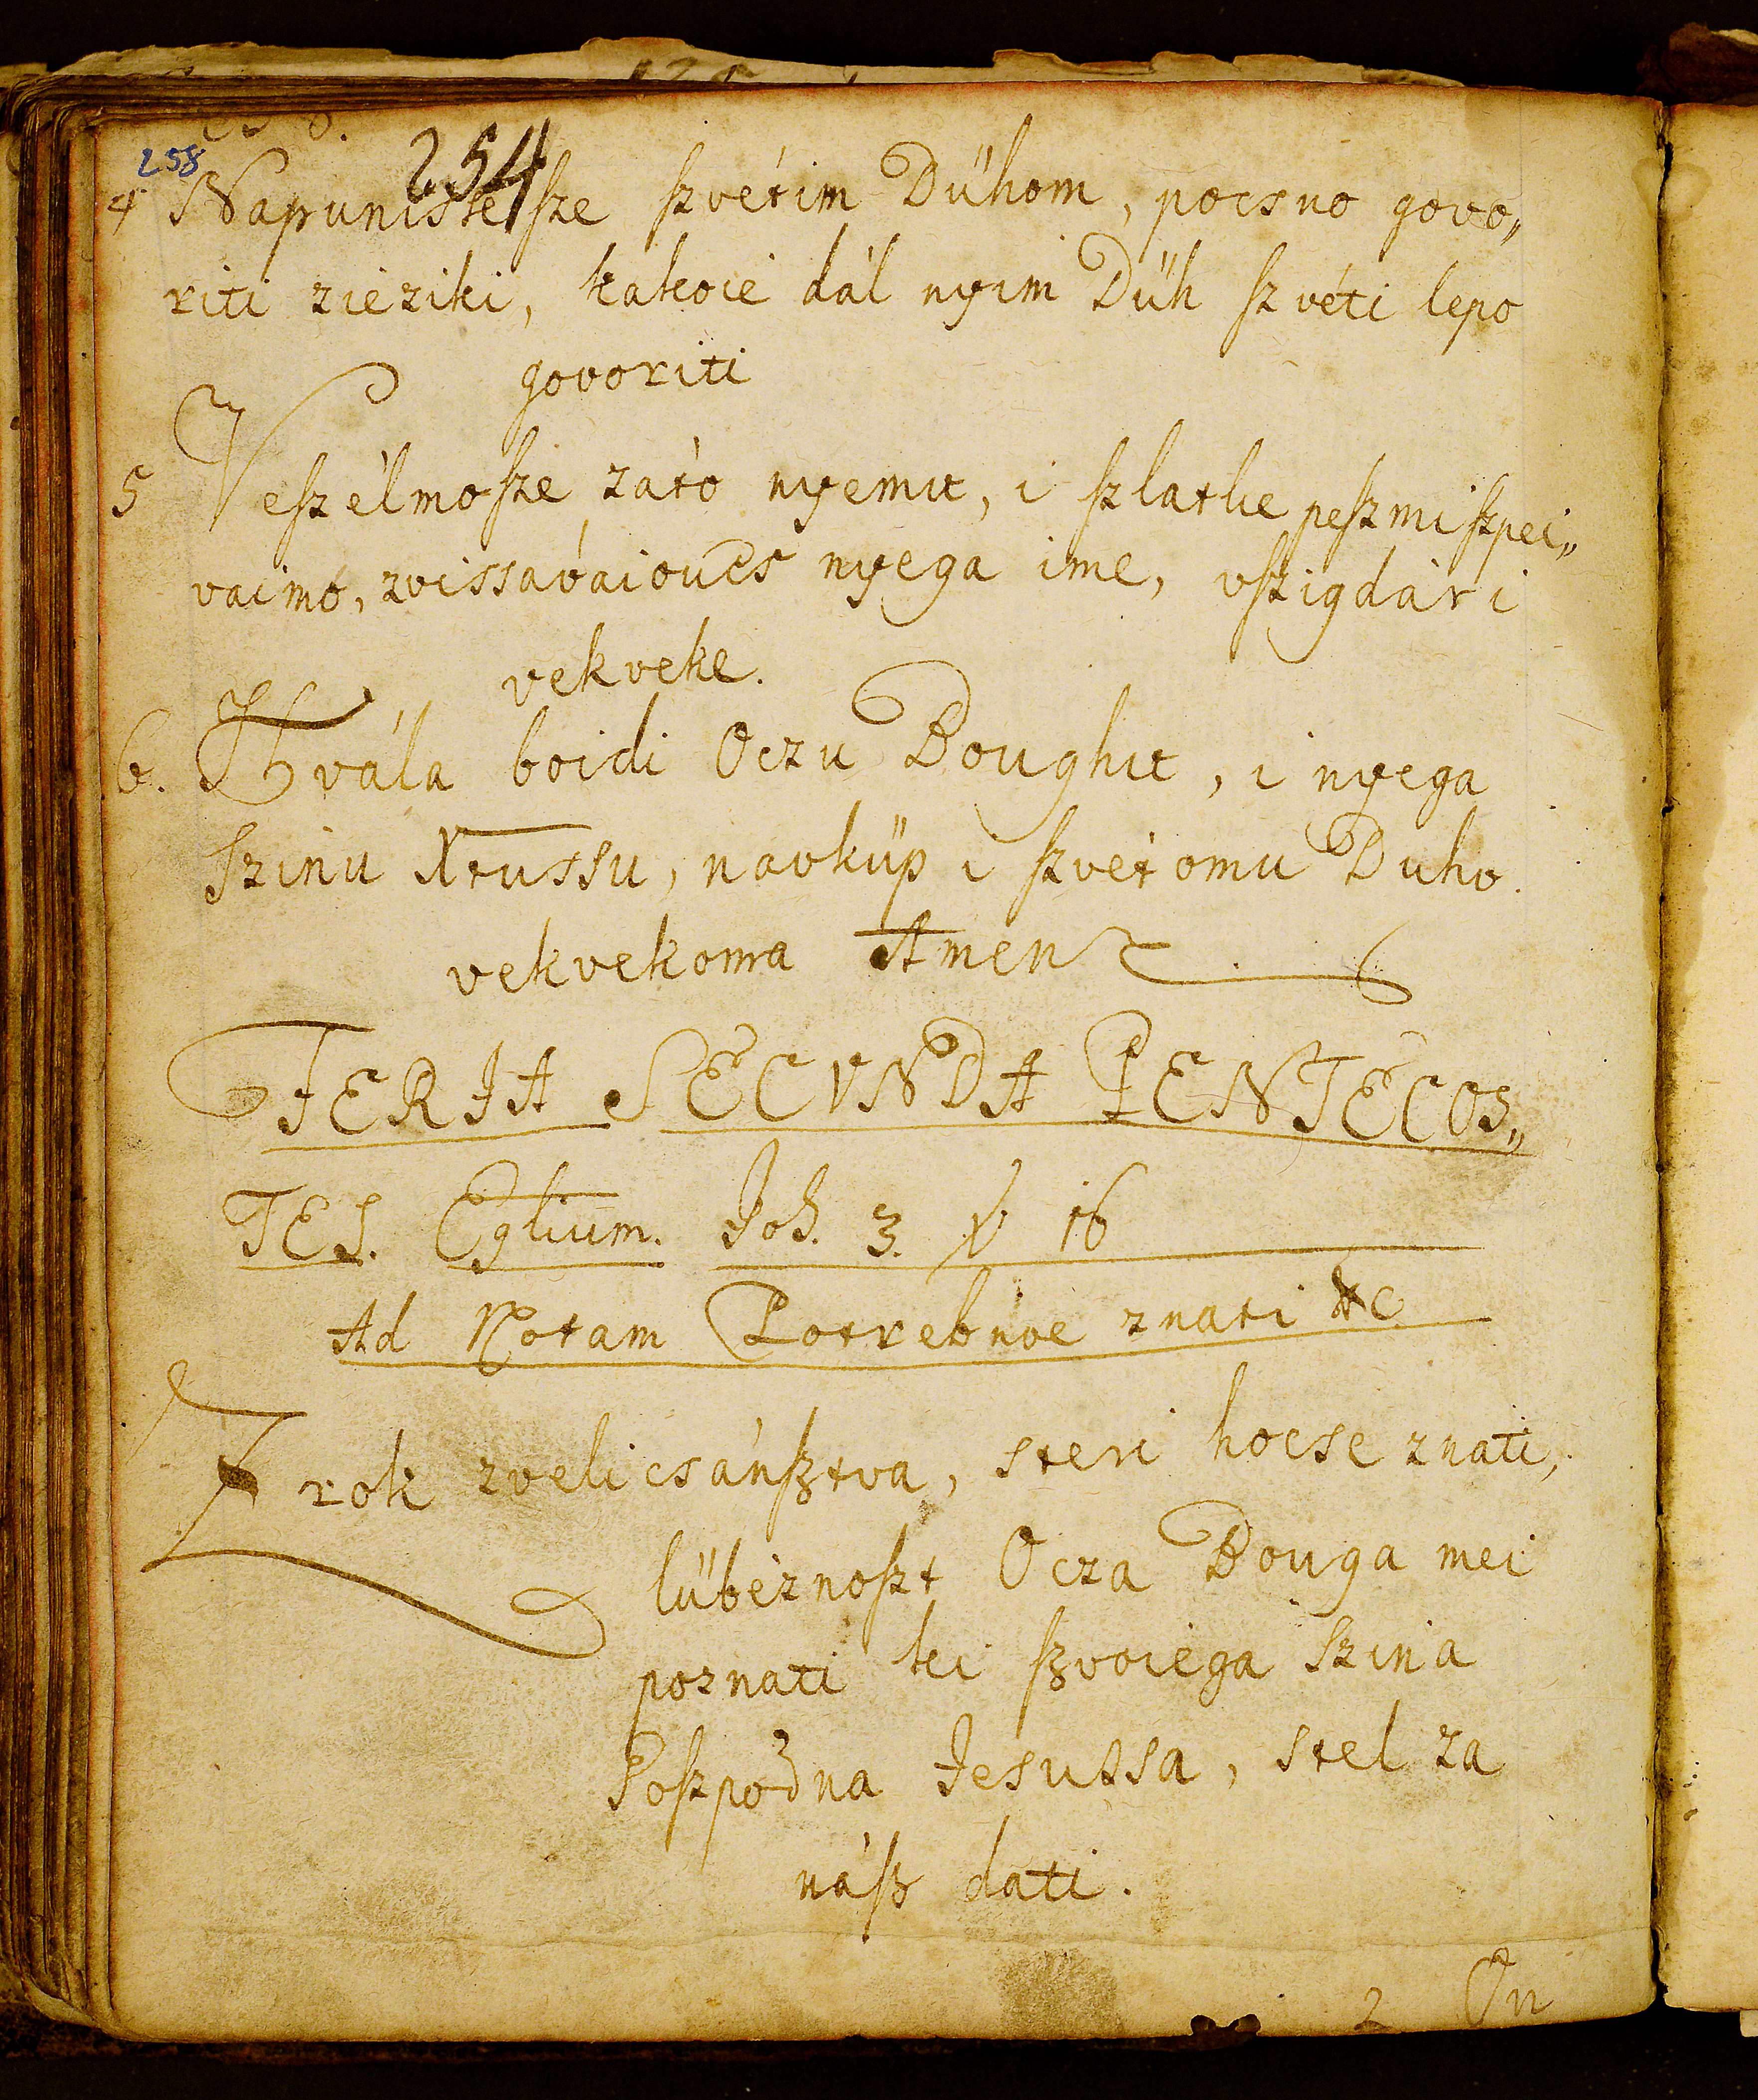 258
254
4 Napunisse ſze ſzvétim Dühom, pocsno govo„
riti zieziki, kakoié dál nyim Düh ſzvéti lepo
govoriti
5 Veſzélmoſze zató nyemu, i ſzlatke peſzmi ſzpei„
vaimo, zvissavaioucs nyega ime, vſzigdár i
vekveke.
6. Hvála boidi Oczu Boughu, i nyega
Szinu Xtussu, navküp i ſzvétomu Duho.
vekvekoma Amen
FERIA SECVNDA PENTECOS„
TES. Eglium. Joh. 3. ℣ 16
Ad Notam Potrebnoe znati &c
Zrok zvelicsánſztva, steri hocse znati,
lübéznoſzt Ocza Bouga mei
poznati ki ſzvoiega Szina
Goſzpodna Jesussa, stel za
náſz dati.
2 On